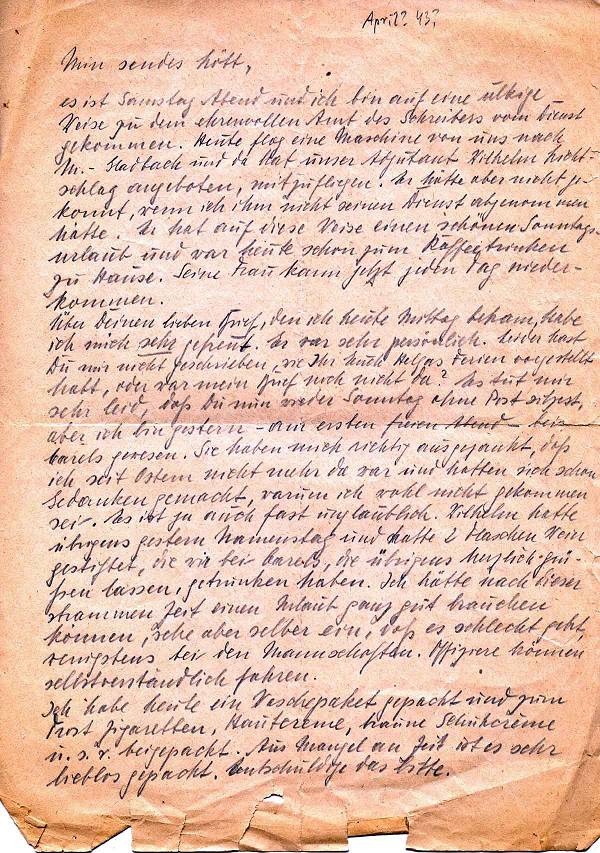 April? 43?
Min sendes Hött,
es ist Samstag Abend und ich bin auf eine ulkige
Weise zu dem ehrenvollen Amt des Schreibers vom Dienst
gekommen. Heute flog eine Maschine von uns nach
M.-Gladbach und da hat unser Adjutant Wilhelm
schlag angeboten, mitzufliegen. Er hätte aber nicht ge-
konnt, wenn ich ihm nicht seinen Dienst abgenommen
hätte. Er hat auf diese Weise einen schönen Sonntags-
urlaub und war heute schon zum Kaffeetrinken
zu Hause. Seine Frau kann jetzt jeden Tag nieder-
kommen.
Über Deinen lieben Brief, den ich heute Mittag bekam, habe
ich mich sehr gefreut. Er war sehr persönlich. Leider hast
Du mir nicht geschrieben, wie Ihr Euch Helgas Ferien vorgestellt
habt, oder war mein Brief noch nicht da? Es tut mir
sehr leid, daß Du nun wieder Sonntag ohne Post sitzest,
aber ich bin gestern - am ersten freien Abend - bei
Barels gewesen. Sie haben mich richtig ausgezankt, daß
ich seit Ostern nicht mehr da war und hatten sich schon
Gedanken gemacht, warum ich wohl nicht gekommen
sei. Es ist ja auch fast unglaublich. Wilhelm hatte
übrigens gestern Namenstag und hatte 2 Flaschen Wein
gestiftet, die wir bei Barels, die übrigens herzlich grü-
ßen lassen, getrunken haben. Ich hätte nach dieser
strammen Zeit einen Urlaub ganz gut brauchen
können, sehe aber selber ein, daß es schlecht geht,
wenigstens bei den Mannschaften. Offiziere können
selbstverständlich fahren.
Ich habe heute ein Wäschepaket gepackt und zum
Trost Zigaretten, Hautcreme, braune Schuhcrème
u.s.w. beigepackt. Aus Mangel an Zeit ist es sehr
lieblos gepackt. Entschuldige das bitte.